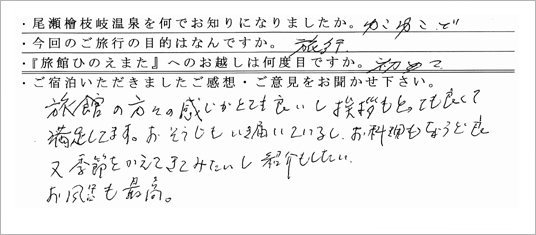 ・尾瀬檜枝岐温泉を何でお知りになりましたか。ゆこゆこど
・今回のご旅行の目的はなんですか。旅行
・『旅館ひのえまた』へのお越しは何度目ですか。初めて
・ご宿泊いただきましたご感想・ご意見をお聞かせ下さい。
旅館の方々の感じがとても良いし挨拶もとっても良くて
満足してます。おそうじもいき届いているし、お料理もちょうど良
又季節をかえてきてみたいし紹介もしたい。
お風呂も最高。